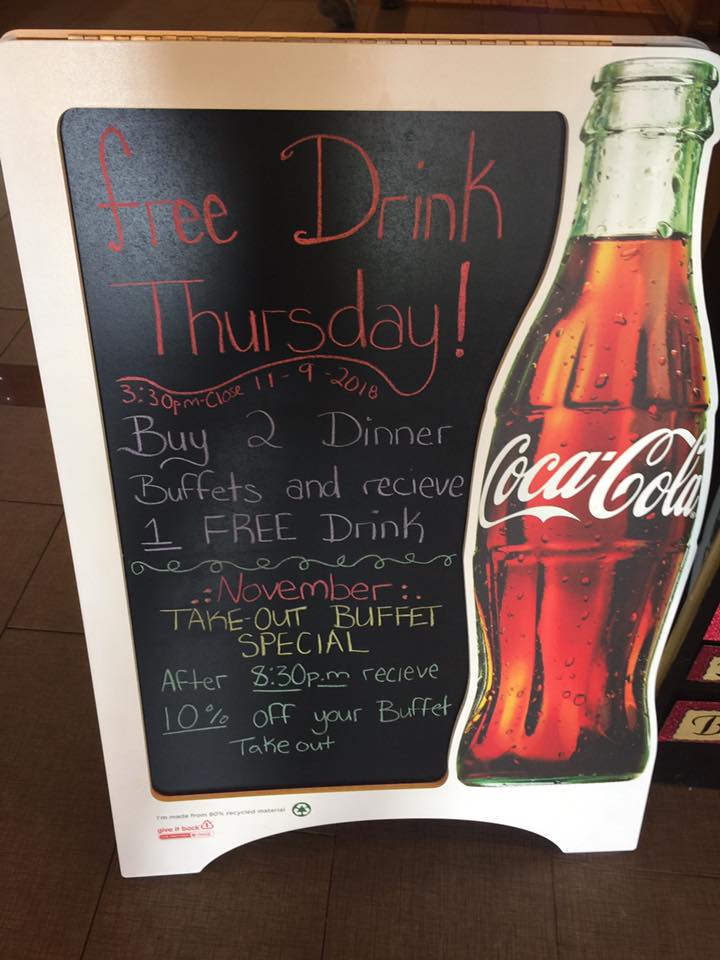 free Drink
Thursday!
3:30pm-Close 11-9-2018
Buy 2 Dinner
Buffets and recieve
1 FREE Drink
November
TAKE-OUT BUFFET
SPECIAL
After 8:30p.m recieve
10% off your Buffet
Take out
Coca-Cola
I'm made from 80% recycled material
give it back